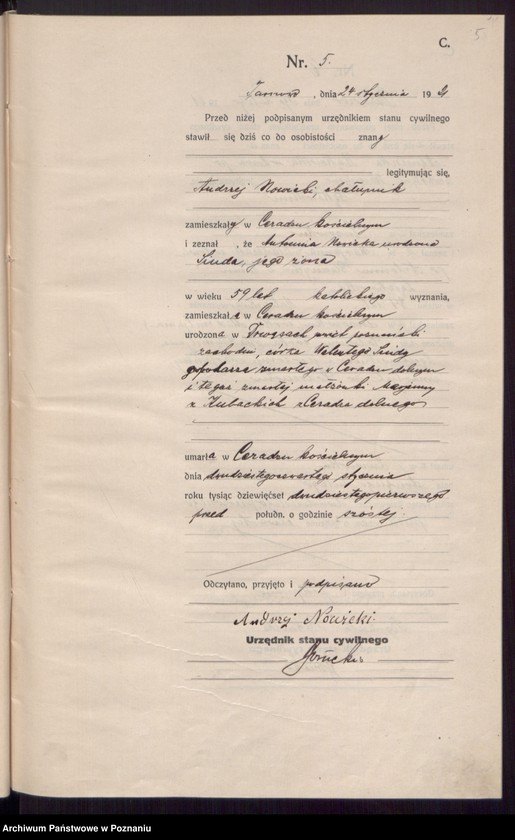 5
C.
Nr. 5.
Tarnowo, dnia 24 stycznia 1921
Przed niżej podpisanym urzędnikiem stanu cywilnego
stawił się dziś co do osobistości znany
legitymując się,
Andrzej Nowicki, chałupnik
zamieszkały w Ceradzu kościelnym
i zeznał, że Antonina Nowicka urodzona
Siuda, jego żona
w wieku 59 lat katolickiego wyznania,
zamieszkała w Ceradzu kościelnym
urodzona w powiat poznański
zachodni, córka Walentego Siudy
gospodarza zmarłego w Ceradzu dolnym
i tegoż zmarłej małżonki Maryanny
z Kubackich z Ceradza dolnego
umarła w Ceradzu kościelnym
dnia dwudziestegoczwartego stycznia
roku tysiąc dziewięćset dwudziestegopierwszego
przed połudn. o godzinie szóstej.
Odczytano, przyjęto i podpisano
Andrzy Nowicki
Urzędnik stanu cywilnego
Archiwum Państwowe w Poznaniu